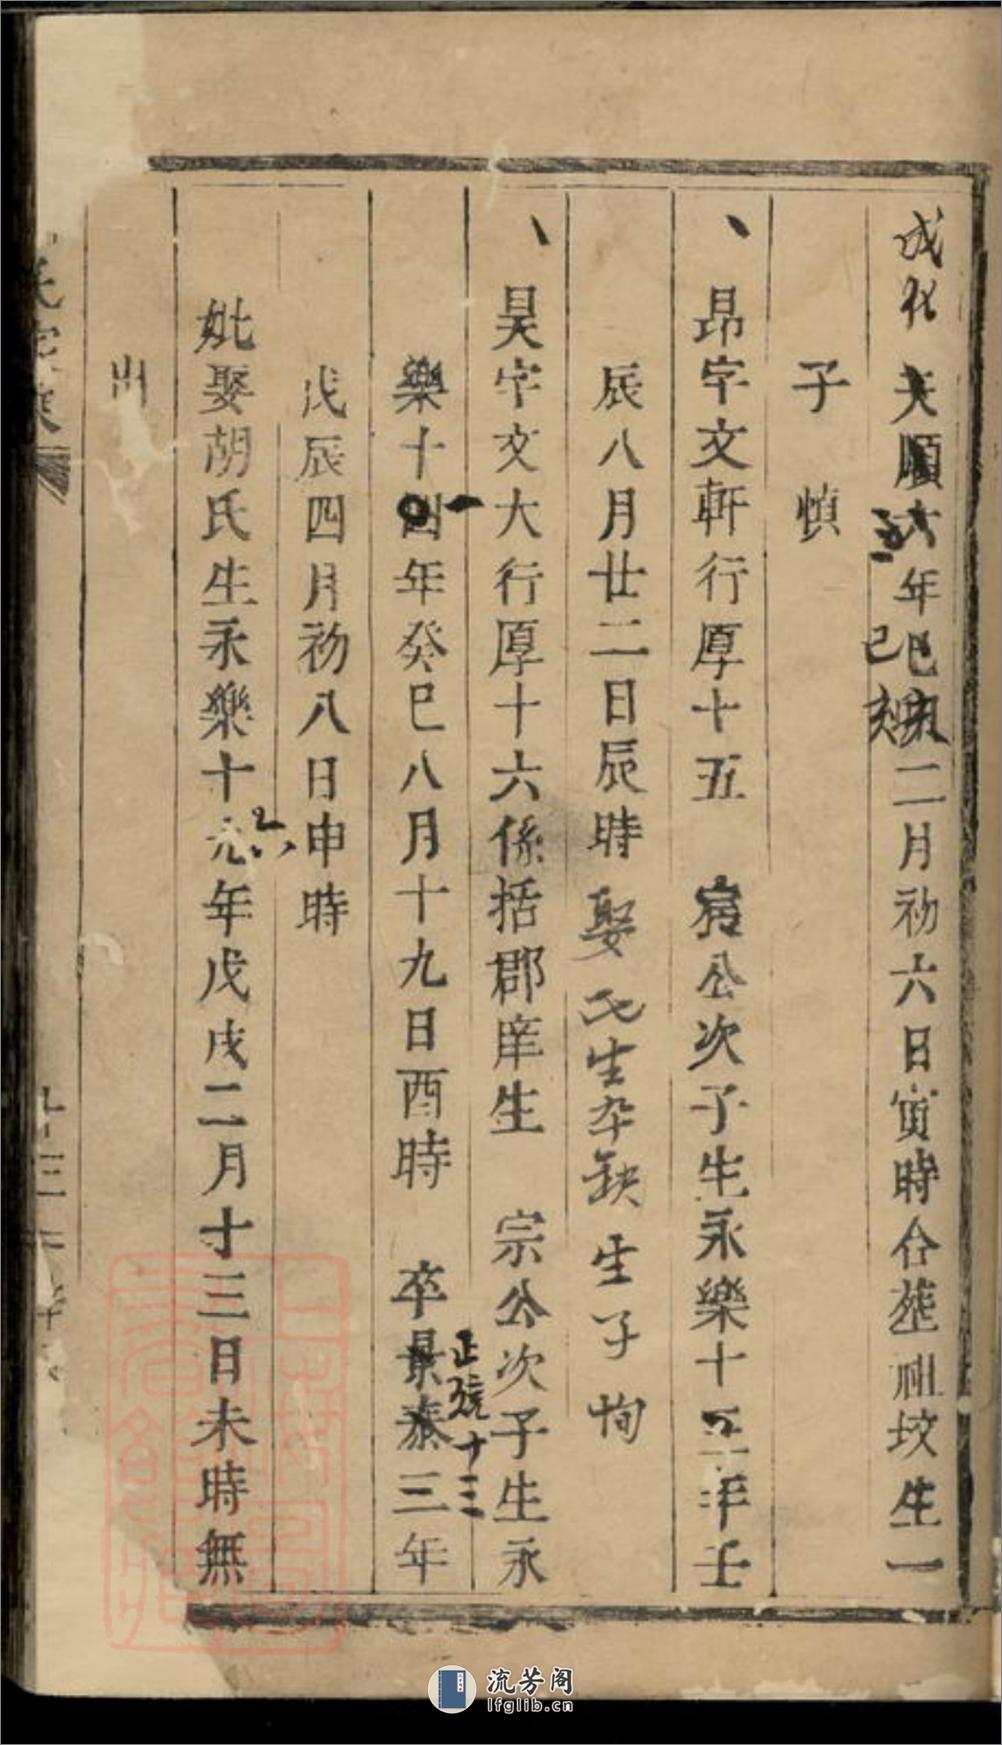 成化
天順六年巳亥二月初六日寅時合塟祖坟生一
三
己亥
子慎
、昂字文軒行厚十五　寛公次子生永樂十年壬
辰八月廿二日辰時娶氏生卒缺生子恂
、昊字文大行厚十六係括郡庠生　宗公次子生永
樂十四年癸巳八月十九日酉時　卒景泰三年
一
正統十三
戊辰四月初八日申時
妣娶胡氏生永樂十元年戊戌二月十三日未時無
六
出
氏宗
流芳阁
lfglib.cn